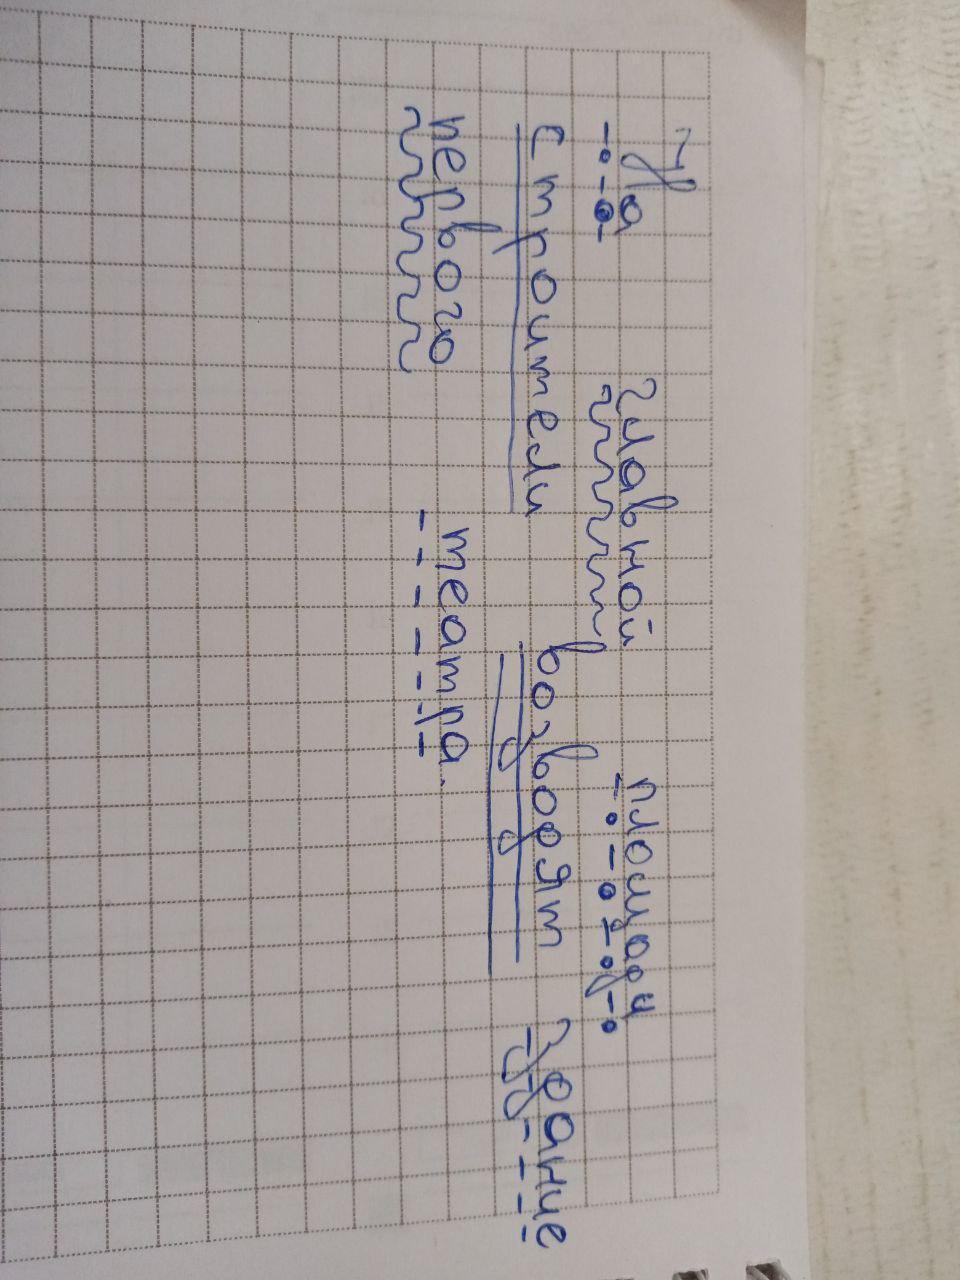 На главной площади
строители возводят здание
первого театра.